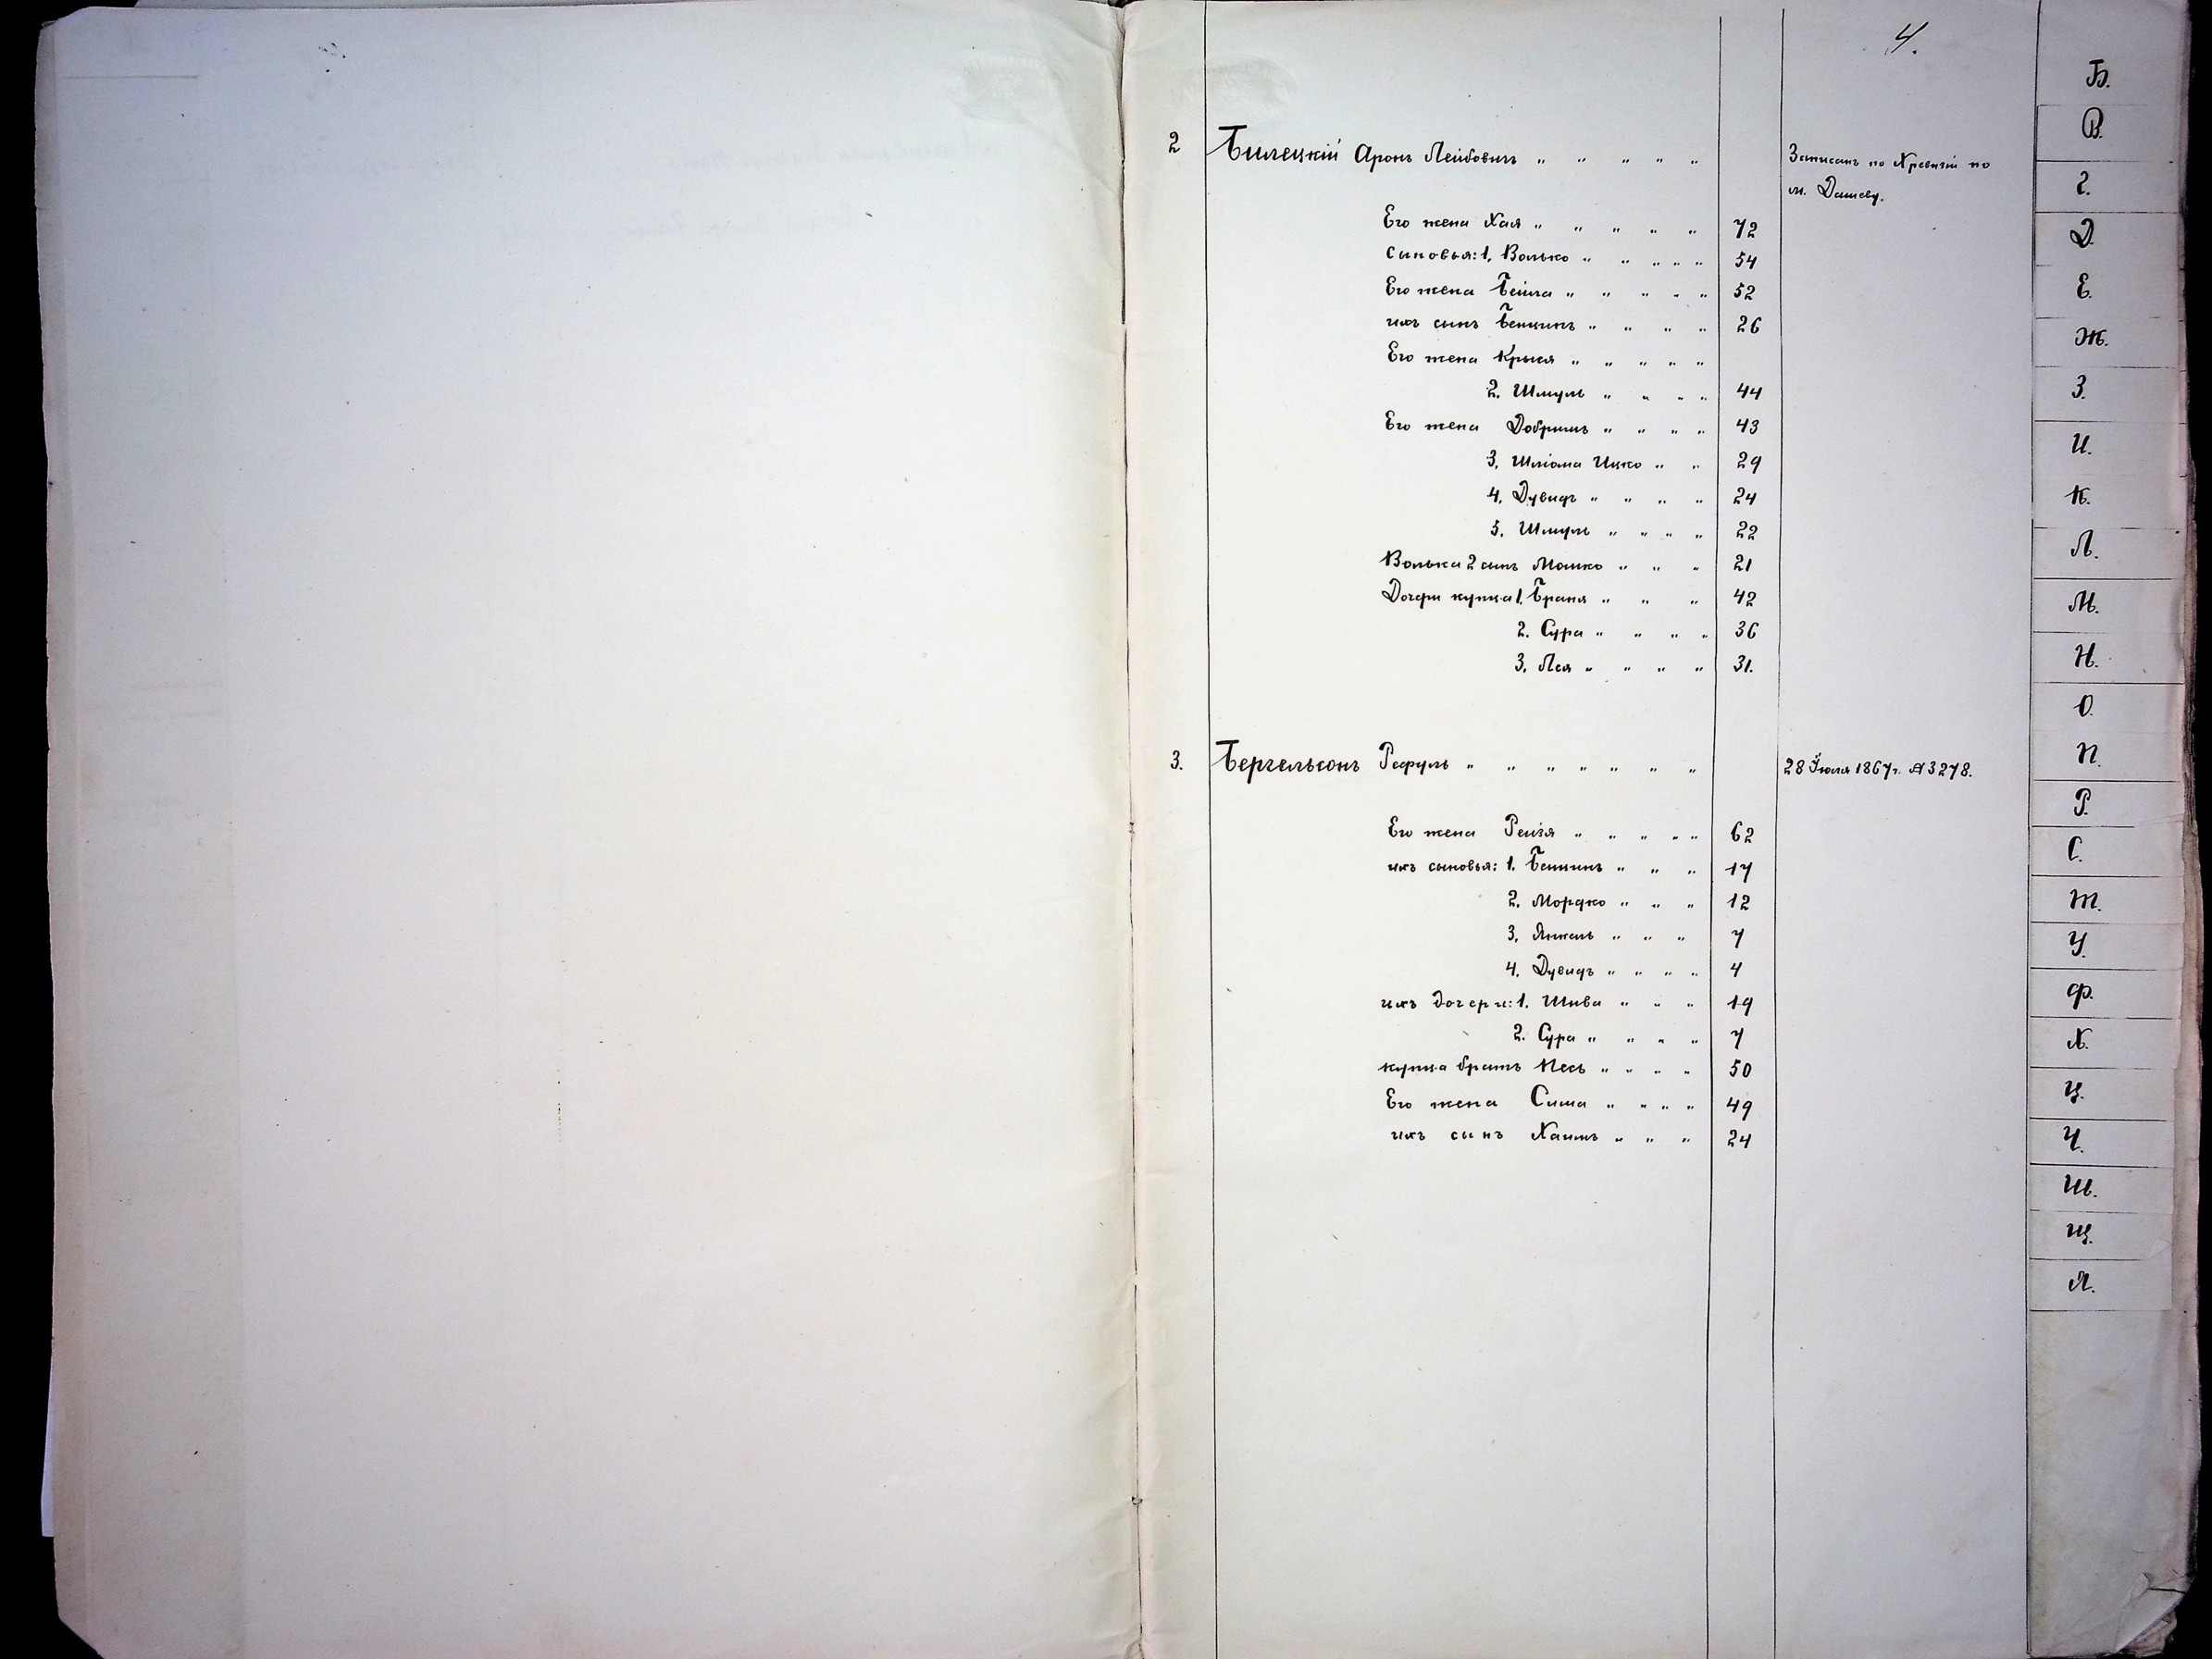 4.
2 Билецкій Аронъ Лейбовичъ " " " " "
Записанъ по X ревизіи по
м. Дашеву.
Его жена Хая " " " " " 72
сыновья: 1. Волько " " " " " 54
Его жена Бейла " " " " " 52
ихъ сынъ Бенцинъ " " " " 26
Его жена Крыся " " " " "
2. Шмуль " " " " 44
Его жена Добришъ " " " " 43
3. Шліома Ицко " " 29
4. Дувидъ " " " " 24
5. Шмуль " " " " 22
Волька 2 сынъ Мошко " " " 21
Дочери купца 1. Браня " " " 42
2. Сура " " " " 36
3. Лея " " " " 31.
3. Бергельсонъ Рефуль " " " " " " "
28 Іюля 1867 г. № 3278.
Его жена Рейзя " " " " " 62
ихъ сыновья: 1. Бенцинъ " " " 17
2. Мордко " " " 12
3. Янкель " " " 7
4. Дувидъ " " " " 4
ихъ дочери: 1. Шива " " " 19
2. Сура " " " " 7
купца братъ Песъ " " " " 50
Его жена Сима " " " " 49
ихъ сынъ Хаимъ " " " 24
Б.
В.
Г.
Д.
Е.
Ж.
З.
И.
К.
Л.
М.
Н.
О.
П.
Р.
С.
Т.
У.
Ф.
Х.
Ц.
Ч.
Ш.
Щ.
Я.